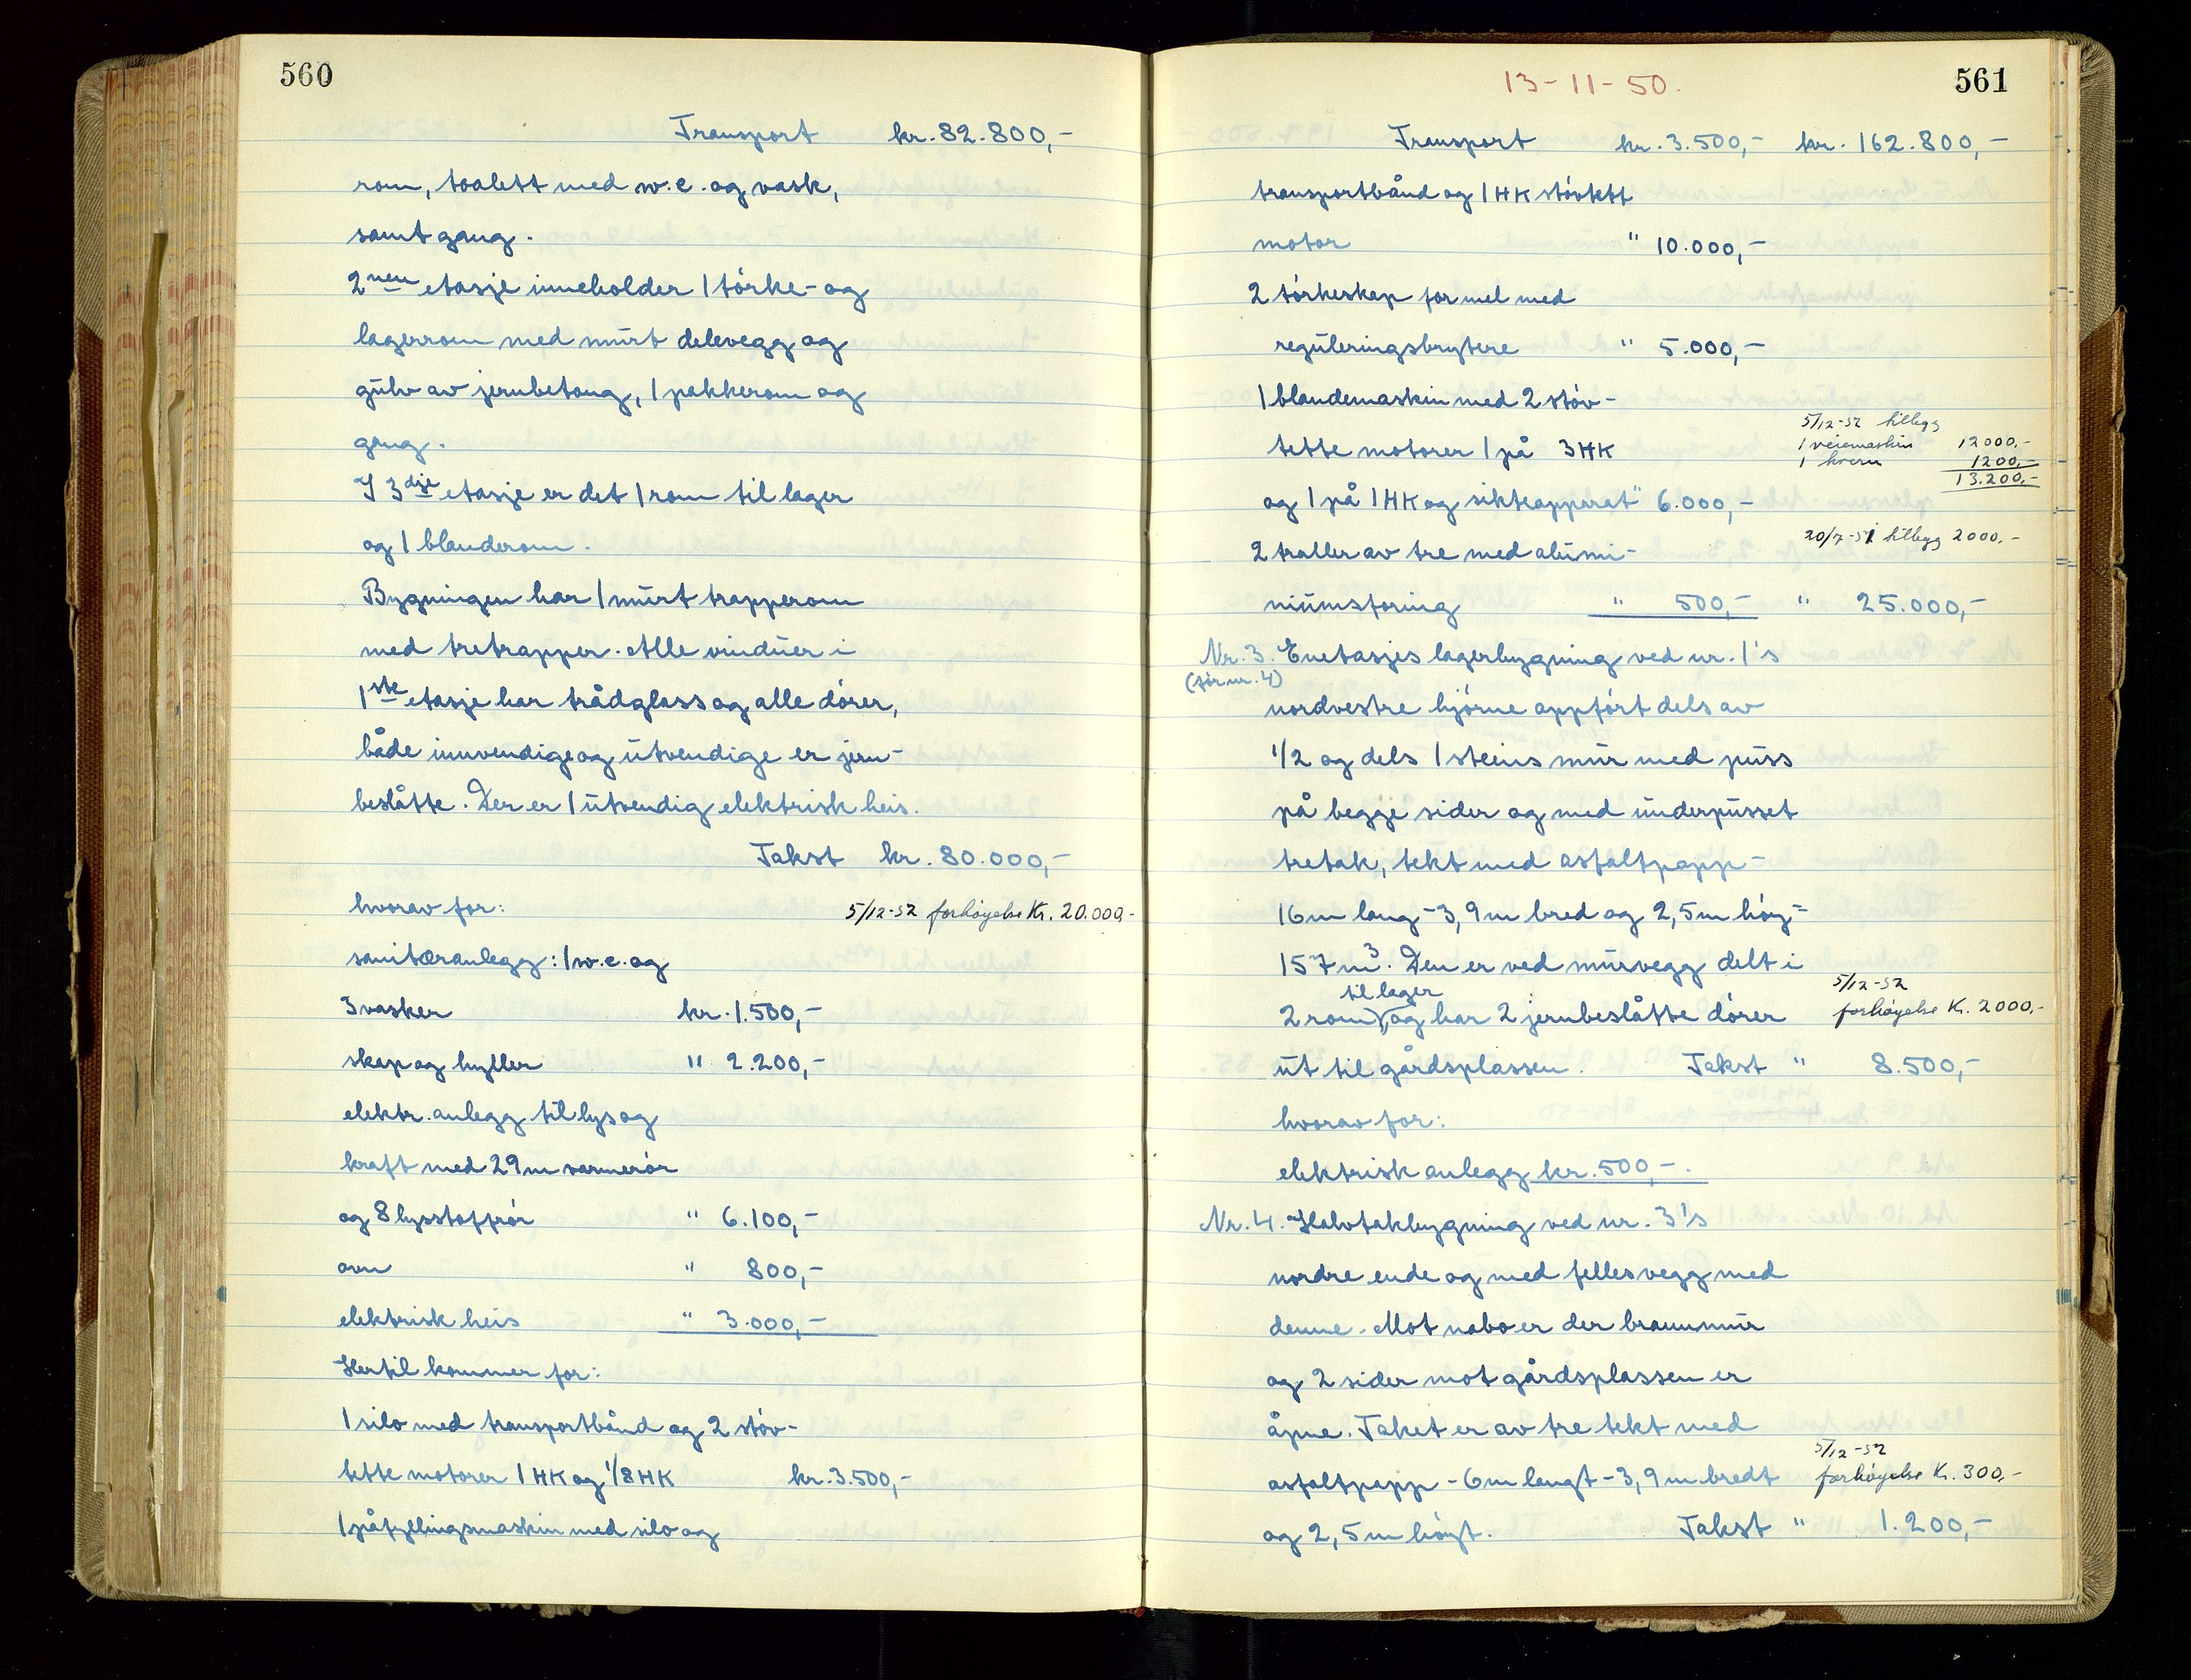 560
Transport kr. 82.800,-
rom, toalett med w.c. og vask,
samt gang.
2nen etasje inneholder 1 tørke- og
lagerrom med murt delevegg og
gulv av jernbetong, 1 pakkerom og
gang.
I 3dje etasje er det 1 rom til lager
og 1 blanderom.
Bygningen har 1 murt trapperom
med tretrapper. Alle vinduer i
1ste etasje har trådglass og alle dører,
både innvendige og utvendige er jern-
beslåtte. Der er 1 utvendig elektrisk heis.
Takst kr. 80.000,-
hvorav for:
5/12-52 forhøyelse Kr. 20.000,-
sanitæranlegg: 1 w.c. og
3 vasker kr. 1.500,-
skap og hyller " 2.200,-
elektr. anlegg til lys og
kraft med 29 m varmerør
og 8 lysstoffrør " 6.100,-
ovn " 800,-
elektrisk heis " 3.000,-
Hertil kommer for:
1 silo med transportbånd og 2 støv-
tette motorer 1 HK og 1/8 HK kr. 3.500,-
1 påfyllingsmaskin med silo og
13-11-50.
561
Transport kr. 3.500,- kr. 162.800,-
transportbånd og 1 HK støvtett
motor " 10.000,-
2 tørkeskap for mel med
reguleringsbrytere " 5.000,-
1 blandemaskin med 2 støv-
5/12-52 tillegg
tette motorer 1 på 3 HK
1 veiemaskin 12000,-
1 kvern 1200,-
13.200,-
og 1 på 1 HK og siktapparat " 6.000,-
20/7-51 tillegg 2000,-
2 traller av tre med alumi-
niumsforing " 500,- " 25.000,-
Nr. 3. Enetasjes lagerbygning ved nr. 1's
(før nr. 4)
nordvestre hjørne oppført dels av
1/2 og dels 1 steins mur med puss
på begge sider og med underpusset
tretak, tekt med asfaltpapp -
16 m lang - 3,9 m bred og 2,5 m høy =
157 m3. Den er ved murvegg delt i
til lager
5/12-52
2 rom, og har 2 jernbeslåtte dører
forhøyelse Kr. 2000,-
ut til gårdsplassen. Takst " 8.500,-
hvorav for:
elektrisk anlegg kr. 500,-.
Nr. 4. Halvtakbygning ved nr. 3's
nordre ende og med felles vegg med
denne. Mot nabo er der brannmur
og 2 sider mot gårdsplassen er
åpne. Taket er av tre tekt med
5/12-52
asfaltpapp - 6 m langt - 3,9 m bredt
forhøyelse Kr. 300,-
og 2,5 m høyt. Takst " 1.200,-